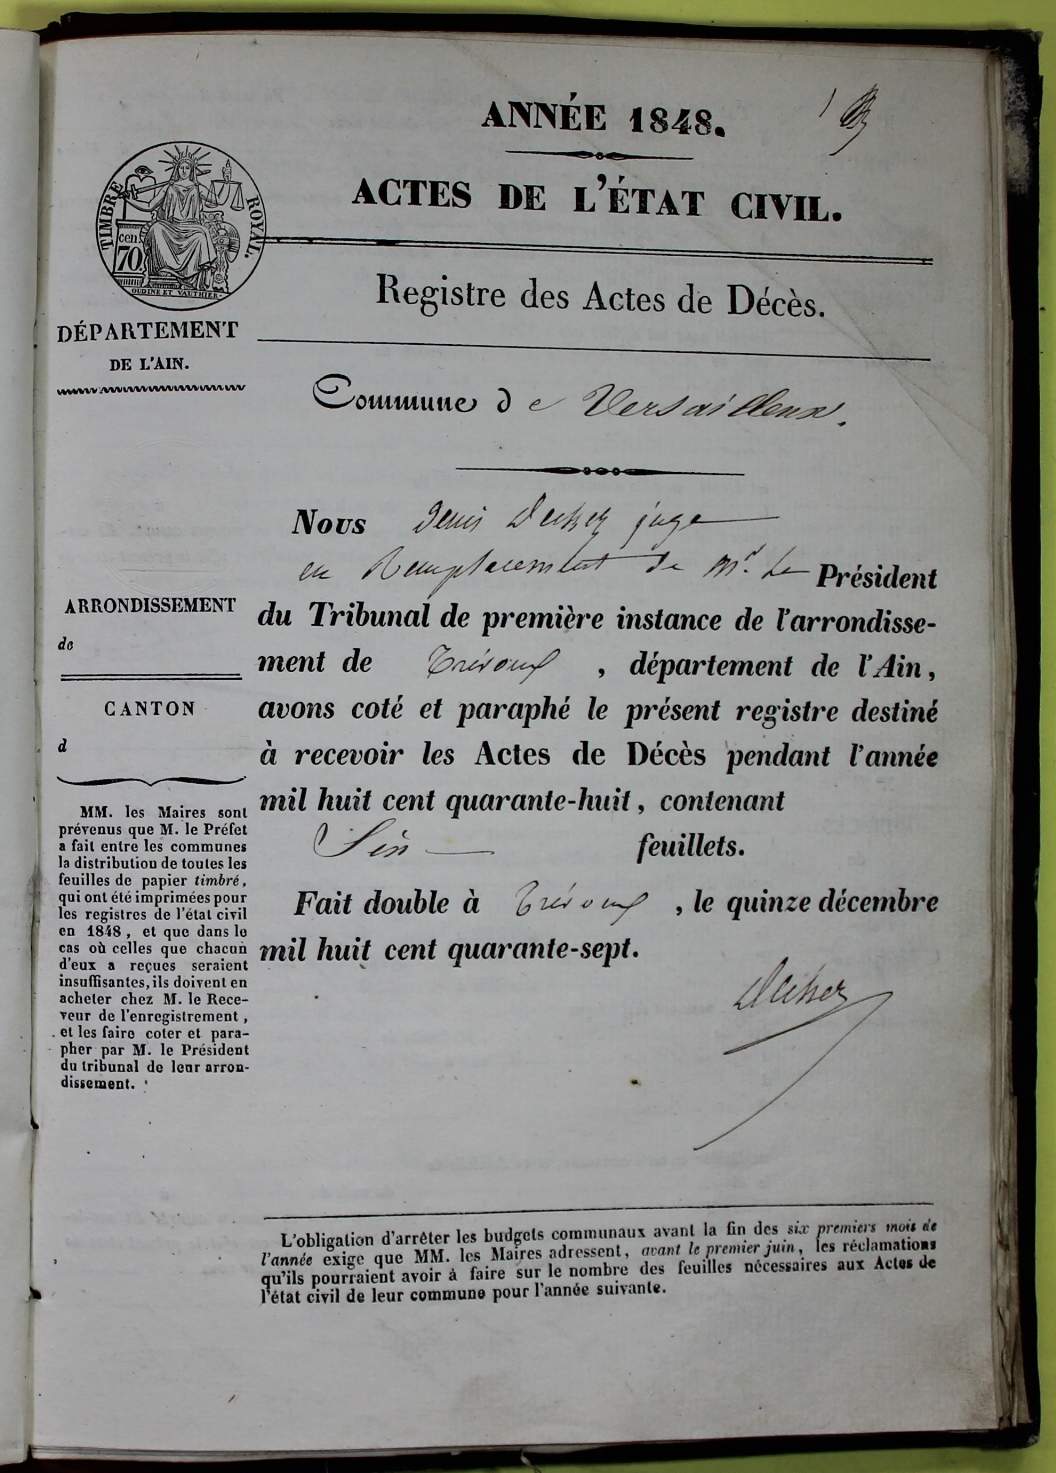 ANNÉE 1848.
1
ACTES DE L'ÉTAT CIVIL.
TIMBRE ROYAL.
cen.
70.
OUDINE ET VAUTHIER
Registre des Actes de Décès.
DÉPARTEMENT
DE L'AIN.
Commune de Versailleux.
Nous Denis juge
en Remplacement de Mr. Le Président
du Tribunal de première instance de l'arrondisse-
ment de Trévoux, département de l'Ain,
avons coté et paraphé le présent registre destiné
à recevoir les Actes de Décès pendant l'année
mil huit cent quarante-huit, contenant
Six feuillets.
Fait double à Trévoux, le quinze décembre
mil huit cent quarante-sept.
ARRONDISSEMENT
de
CANTON
d
MM. les Maires sont
prévenus que M. le Préfet
a fait entre les communes
la distribution de toutes les
feuilles de papier timbré,
qui ont été imprimées pour
les registres de l'état civil
en 1848, et que dans le
cas où celles que chacun
d'eux a reçues seraient
insuffisantes, ils doivent en
acheter chez M. le Rece-
veur de l'enregistrement,
et les faire coter et para-
pher par M. le Président
du tribunal de leur arron-
dissement.
L'obligation d'arrêter les budgets communaux avant la fin des six premiers mois de
l'année exige que MM. les Maires adressent, avant le premier juin, les réclamations
qu'ils pourraient avoir à faire sur le nombre des feuilles nécessaires aux Actes de
l'état civil de leur commune pour l'année suivante.